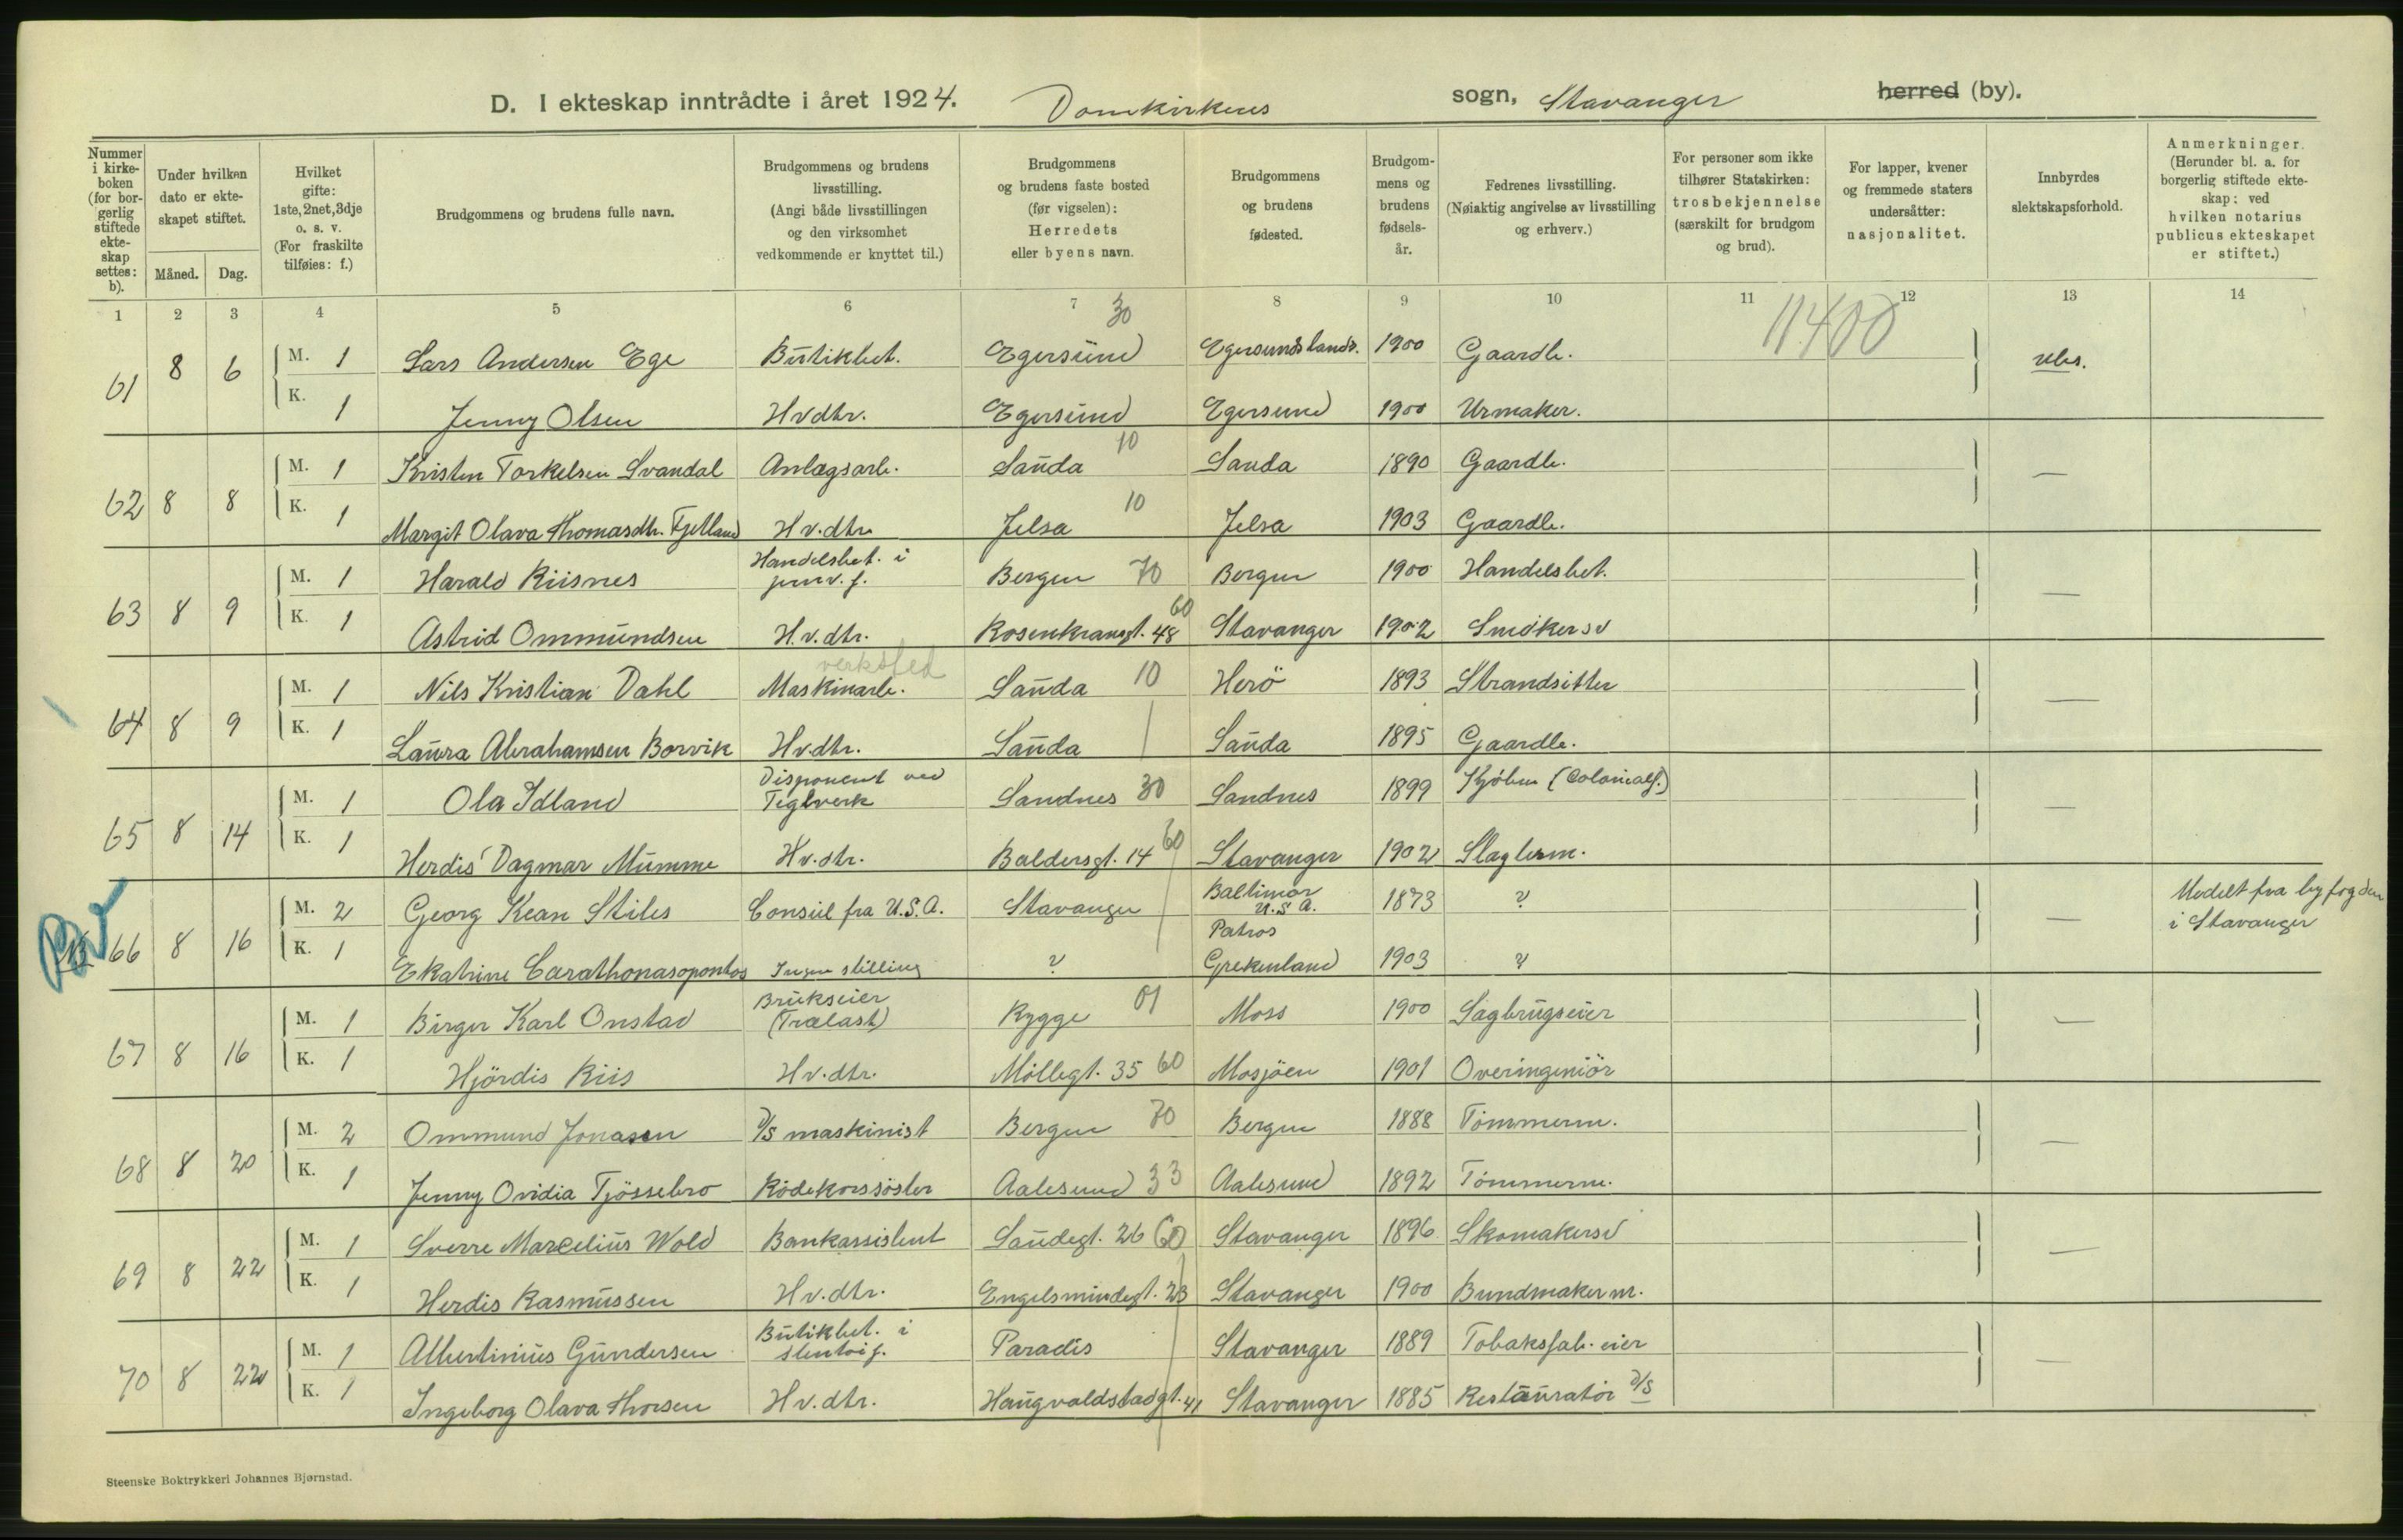 D. I ekteskap inntrådte i året 1924. Domkirkens sogn, Stavanger herred (by).
Nummer i kirkeboken (for borgerlig stiftede ekteskap settes: b).
Under hvilken dato er ekteskapet stiftet.
Måned. Dag.
Hvilket gifte: 1ste, 2net, 3dje o. s. v. (For fraskilte tilføies: f.)
Brudgommens og brudens fulle navn.
Brudgommens og brudens livsstilling. (Angi både livsstillingen og den virksomhet vedkommende er knyttet til.)
Brudgommens og brudens faste bosted (før vigselen): Herredets eller byens navn.
Brudgommens og brudens fødested.
Brudgommens og brudens fødselsår.
Fedrenes livsstilling. (Nøiaktig angivelse av livsstilling og erhverv.)
For personer som ikke tilhører Statskirken: trosbekjennelse (særskilt for brudgom og brud).
For lapper, kvener og fremmede staters undersåtter: nasjonalitet.
Innbyrdes slektskapsforhold.
Anmerkninger. (Herunder bl. a. for borgerlig stiftede ekteskap: ved hvilken notarius publicus ekteskapet er stiftet.)
1 2 3 4 5 6 7 8 9 10 11 12 13 14
30 11400
61 8 6 M. 1 Lars Andersen Ege Butikbet. Egersund Egersundslands. 1900 Gaardb. ubs.
K. 1 Jenny Olsen Hvdtr. Egersund Egersund 1900 Urmaker.
62 8 8 M. 1 Kristen Torkelsen Svandal Anlægsarb. Sauda 10 Sauda 1890 Gaardb. —
K. 1 Margit Olava Thomasdtr. Fjelland Hv.dtr. Jelsa 10 Jelsa 1903 Gaardb.
63 8 9 M. 1 Harald Riisnes Handelsbet. i jernv.f. Bergen 70 Bergen 1900 Handelsbet. —
K. 1 Astrid Ommundsen Hv.dtr. Rosenkransgt. 48 60 Stavanger 1902 Snedkersv
verksted
64 8 9 M. 1 Nils Kristian Dahl Maskinarb. Sauda 10 Herö 1893 Strandsitter —
K. 1 Laura Abrahamsen Borvik Hvdtr. Sauda Sauda 1895 Gaardb.
65 8 14 M. 1 Ola Idland Disponent ved Teglverk Sandnes 30 Sandnes 1899 Kjöbm (Colonialf.) —
K. 1 Herdis Dagmar Mumme Hv.dtr. Baldersgt. 14 60 Stavanger 1902 Slagterm.
66 8 16 M. 2 Georg Kean Stiles Consul fra U.S.A. Stavanger Baltimor U.S.A. 1873 ? — Medelt fra byfogden i Stavanger
K. 1 Ekatrine Carathonasopontos Ingen stilling ? Patros Grekenland 1903 ?
67 8 16 M. 1 Birger Karl Onstad Brukseier (Trælast) Rygge 01 Moss 1900 Sagbrugseier —
K. 1 Hjördis Riis Hv.dtr. Möllegt. 35 60 Mosjöen 1901 Overingeniör
68 8 20 M. 2 Ommund Jonasen D/S maskinist Bergen 70 Bergen 1888 Tömmerm. —
K. 1 Jenny Ovidia Tjössebro Rödekorssöster Aalesund 33 Aalesund 1892 Tömmerm.
69 8 22 M. 1 Sverre Marcelius Wold Bankassistent Saudegt. 26 60 Stavanger 1896 Skomakersv —
K. 1 Herdis Rasmussen Hv.dtr. Engelsmindegt. 23 Stavanger 1900 Bundmakerm.
70 8 22 M. 1 Albertinius Gundersen Butikbet. i stentöif. Paradis Stavanger 1889 Tobaksfab. eier —
K. 1 Ingeborg Olava Thorsen Hv.dtr. Haugvaldstadgt. 41 Stavanger 1885 Restauratör D/S
Steenske Boktrykkeri Johannes Bjørnstad.